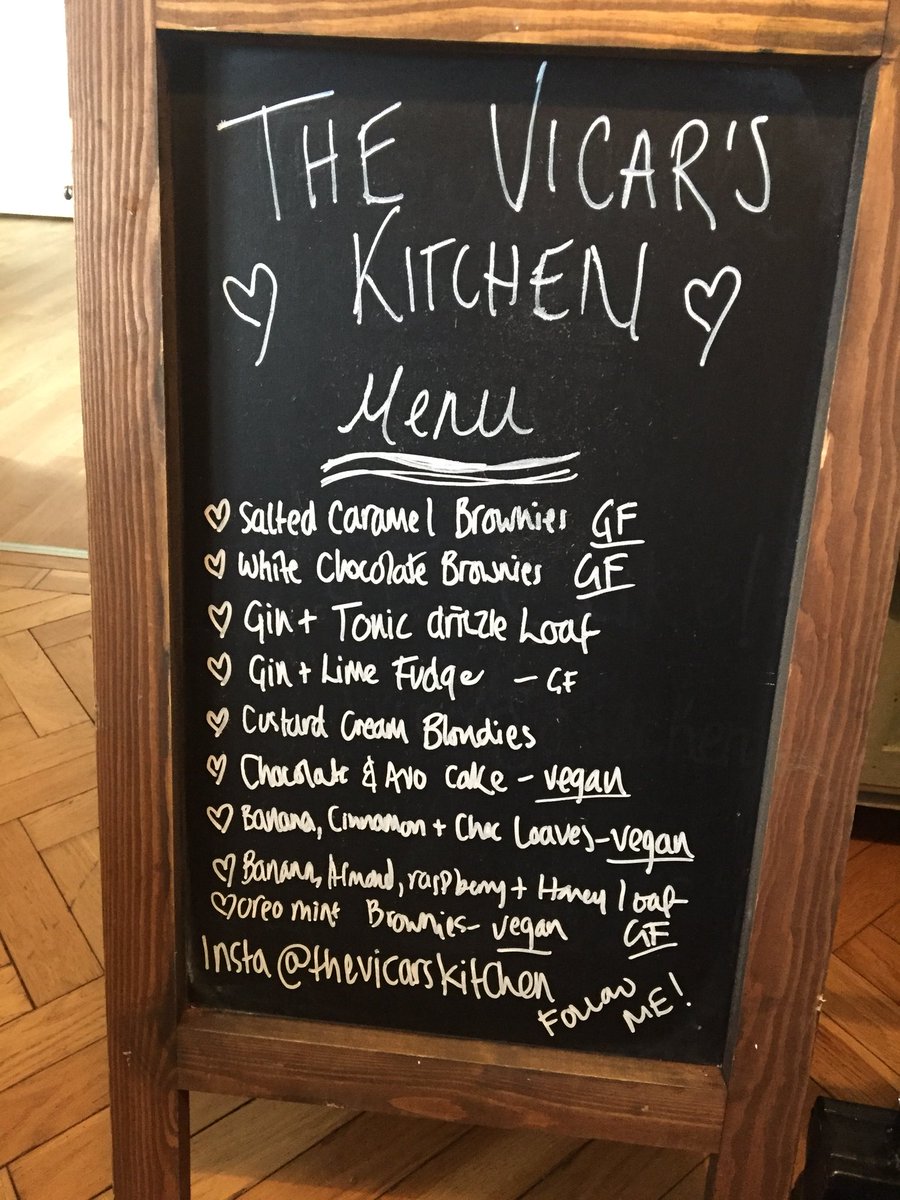 THE VICAR'S
KITCHEN
Menu
Salted Caramel Brownies GF
White Chocolate Brownies GF
Gin + Tonic drizzle Loaf
Gin + Lime Fudge - GF
Custard Cream Blondies
Chocolate & Avo cake - vegan
Banana, Cinnamon + Choc Loaves - vegan
Banana, Almond, raspberry + Honey loaf
GF
Oreo mint Brownies - vegan
Insta @thevicarskitchen
FOLLOW
ME!